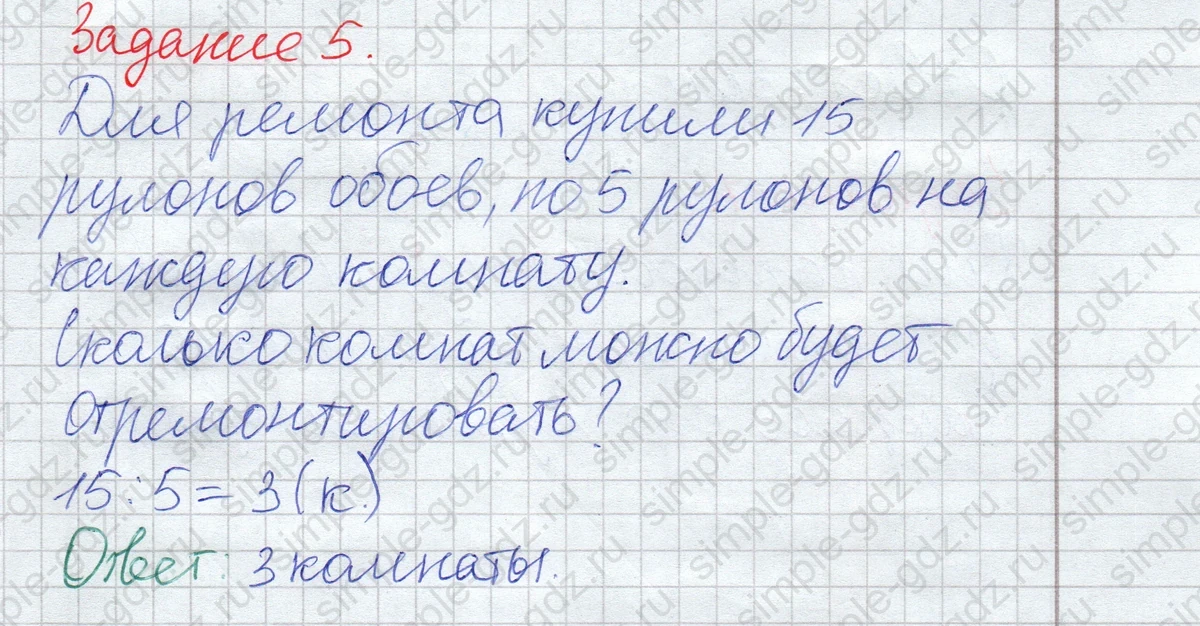 Задание 5.
Для ремонта купили 15
рулонов обоев, по 5 рулонов на
каждую комнату.
Сколько комнат можно будет
отремонтировать?
15:5=3(к.)
Ответ: 3 комнаты.
simple-gdz.ru